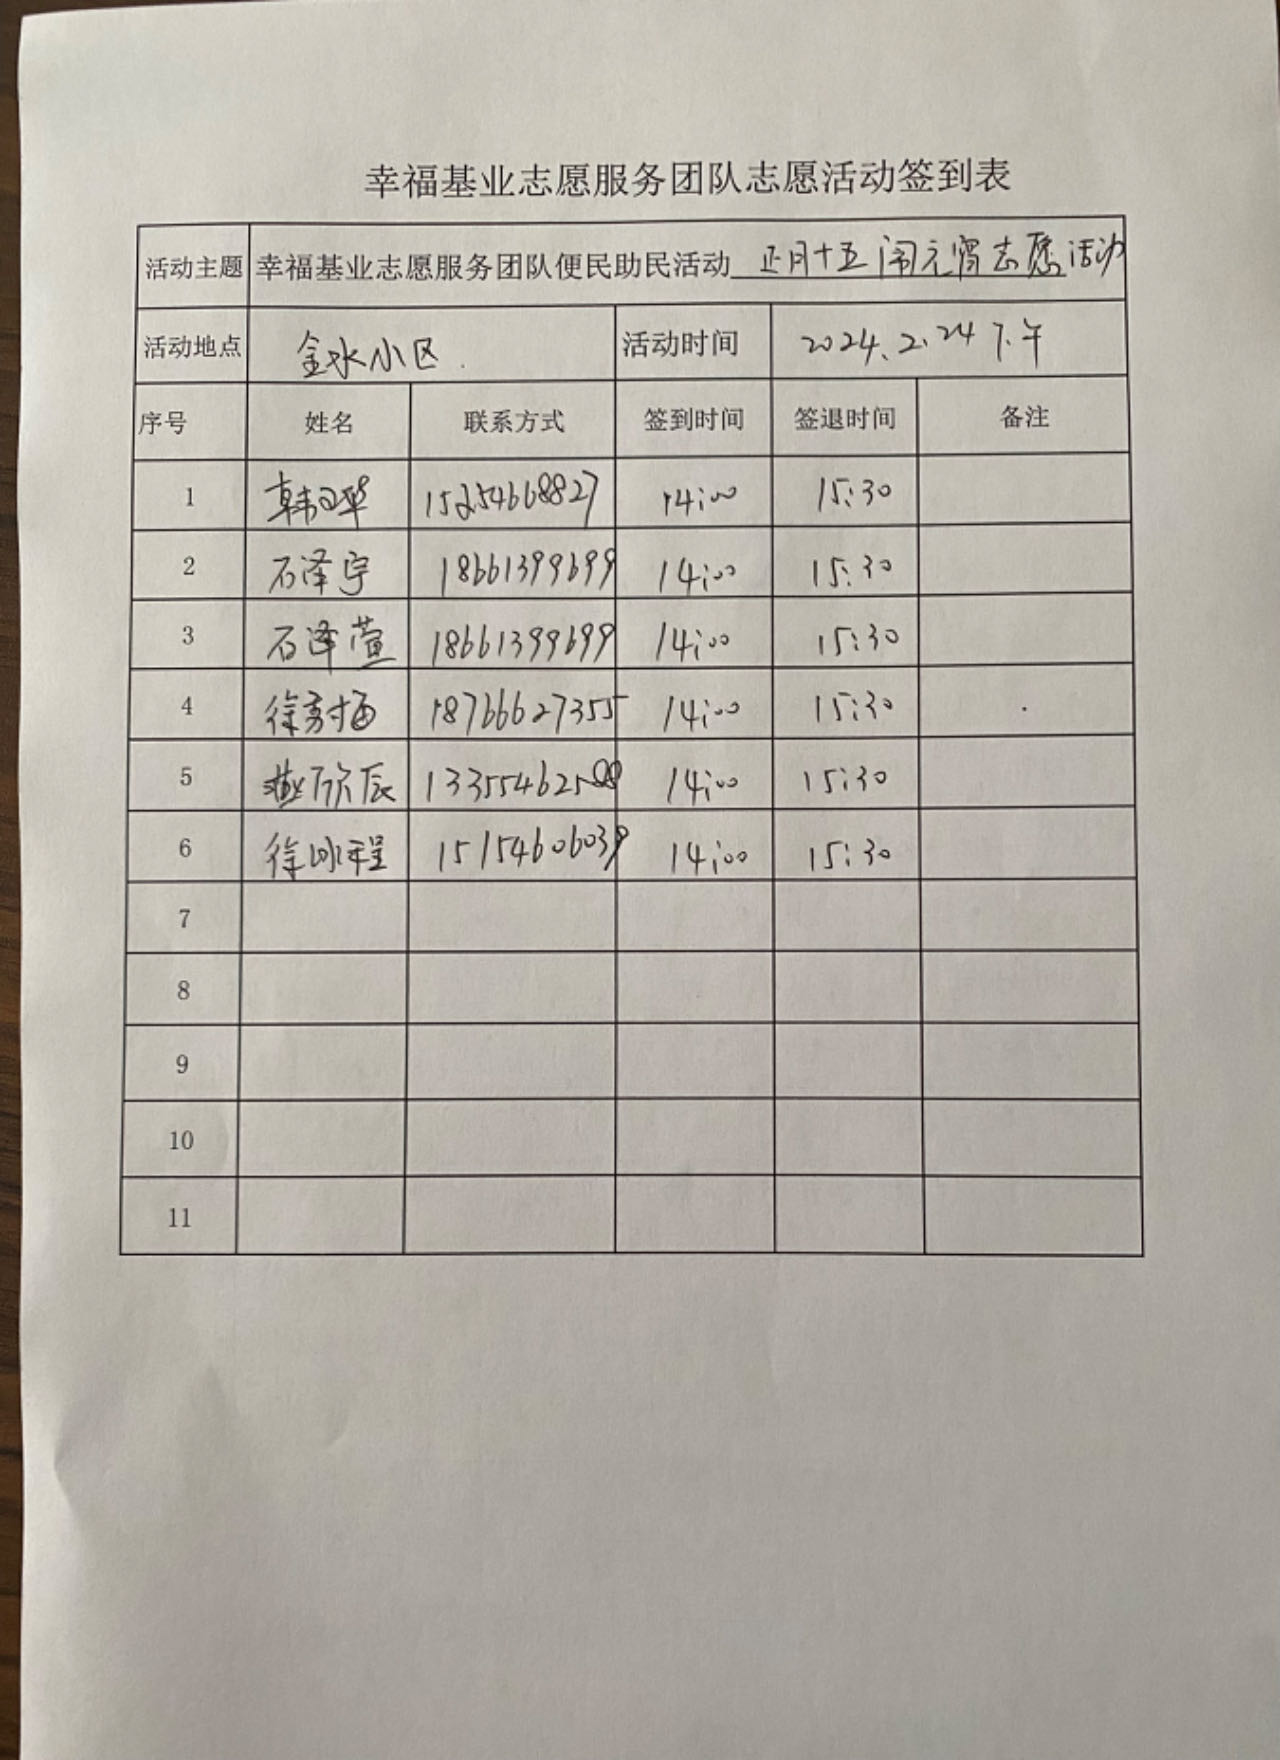 幸福基业志愿服务团队志愿活动签到表
活动主题 幸福基业志愿服务团队便民助民活动 正月十五闹元宵志愿活动
活动地点 金水小区. 活动时间 2024.2.24下午
序号 姓名 联系方式 签到时间 签退时间 备注
1 15254668827 14:00 15:30
2 石泽宇 18661399699 14:00 15:30
3 石泽萱 18661399699 14:00 15:30
4 18766627355 14:00 15:30
5 赵欣辰 14:00 15:30
6 15154606039 14:00 15:30
7
8
9
10
11